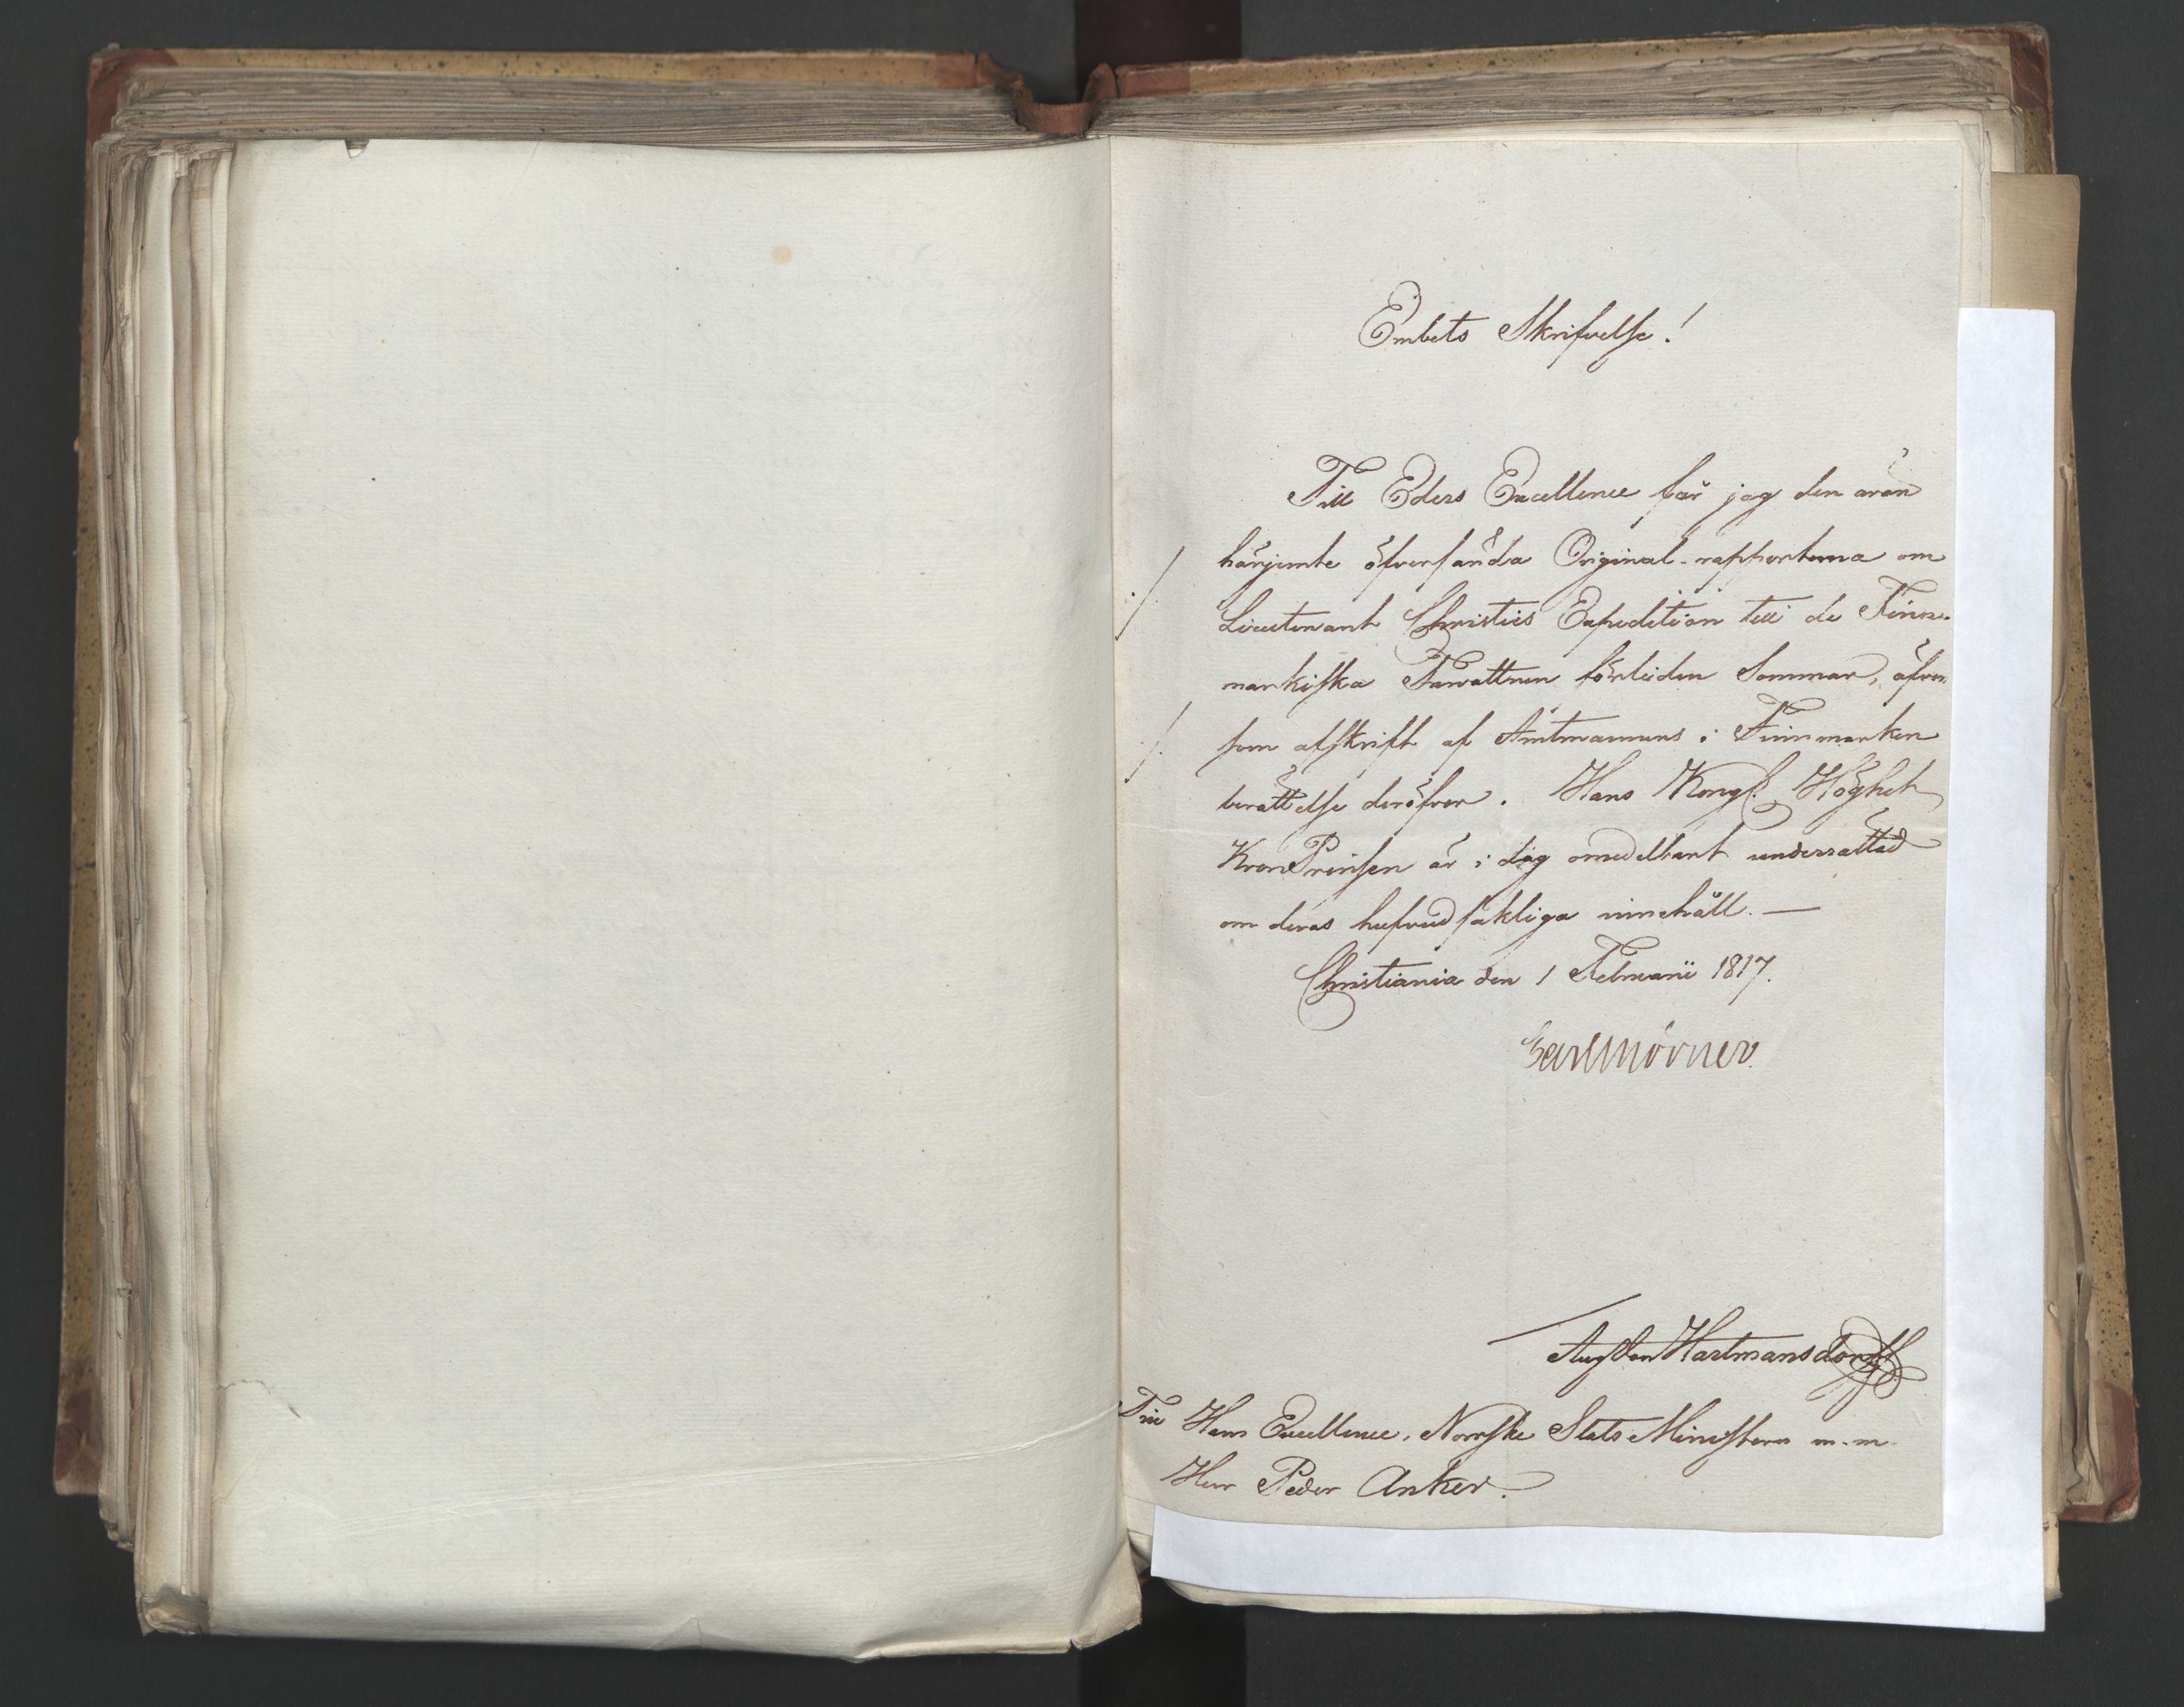 Embets Skrifvelse!
Till Eders Excellence får jag den äran
härjemte öfversända Original-rapporterna om
Lieutenant Christies Expedition till de Finn-
markiska Farvattnen förliden Sommar, äfven
som afskrift af Amtmannens i Finnmarken
berättelse deröfver. Hans Kongl. Höghet
KronPrinsen är i dag omedelbart underrättad
om deras hufvudsakliga innehåll. —
Christiania den 1 Februarii 1817.
Carl Mörner.
Aug Von Hartmansdorff
Till Hans Excellence, Norrske Stats Ministern m.m.
Herr Peder Anker.